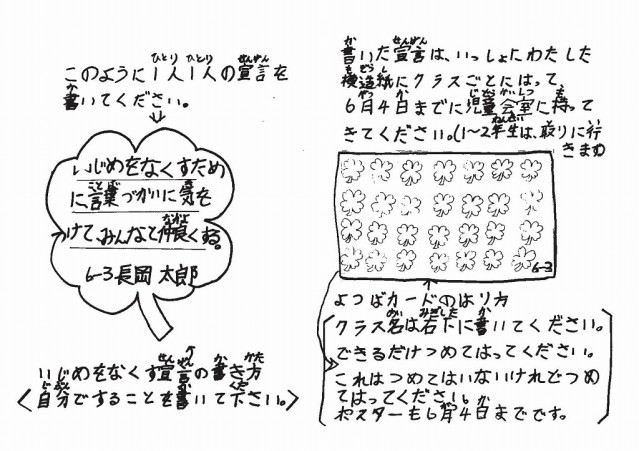 このように1人1人の宣言を
書いてください。
いじめをなくすため
に言葉づかいに気を
つけて、みんなと仲良くする。
6-3 長岡 太郎
いじめをなくす宣言の書き方
〈自分ですることを書いて下さい。〉
書いた宣言は、いっしょにわたした
模造紙にクラスごとにはって、
6月4日までに児童会室に持って
きてください。(1〜2年生は、取りに行
きます)
6-3
よつばカードのはり方
クラス名は右下に書いてください。
できるだけつめてはってください。
これはつめてはいないけれどつめ
てはってください。
ポスターも6月4日までです。